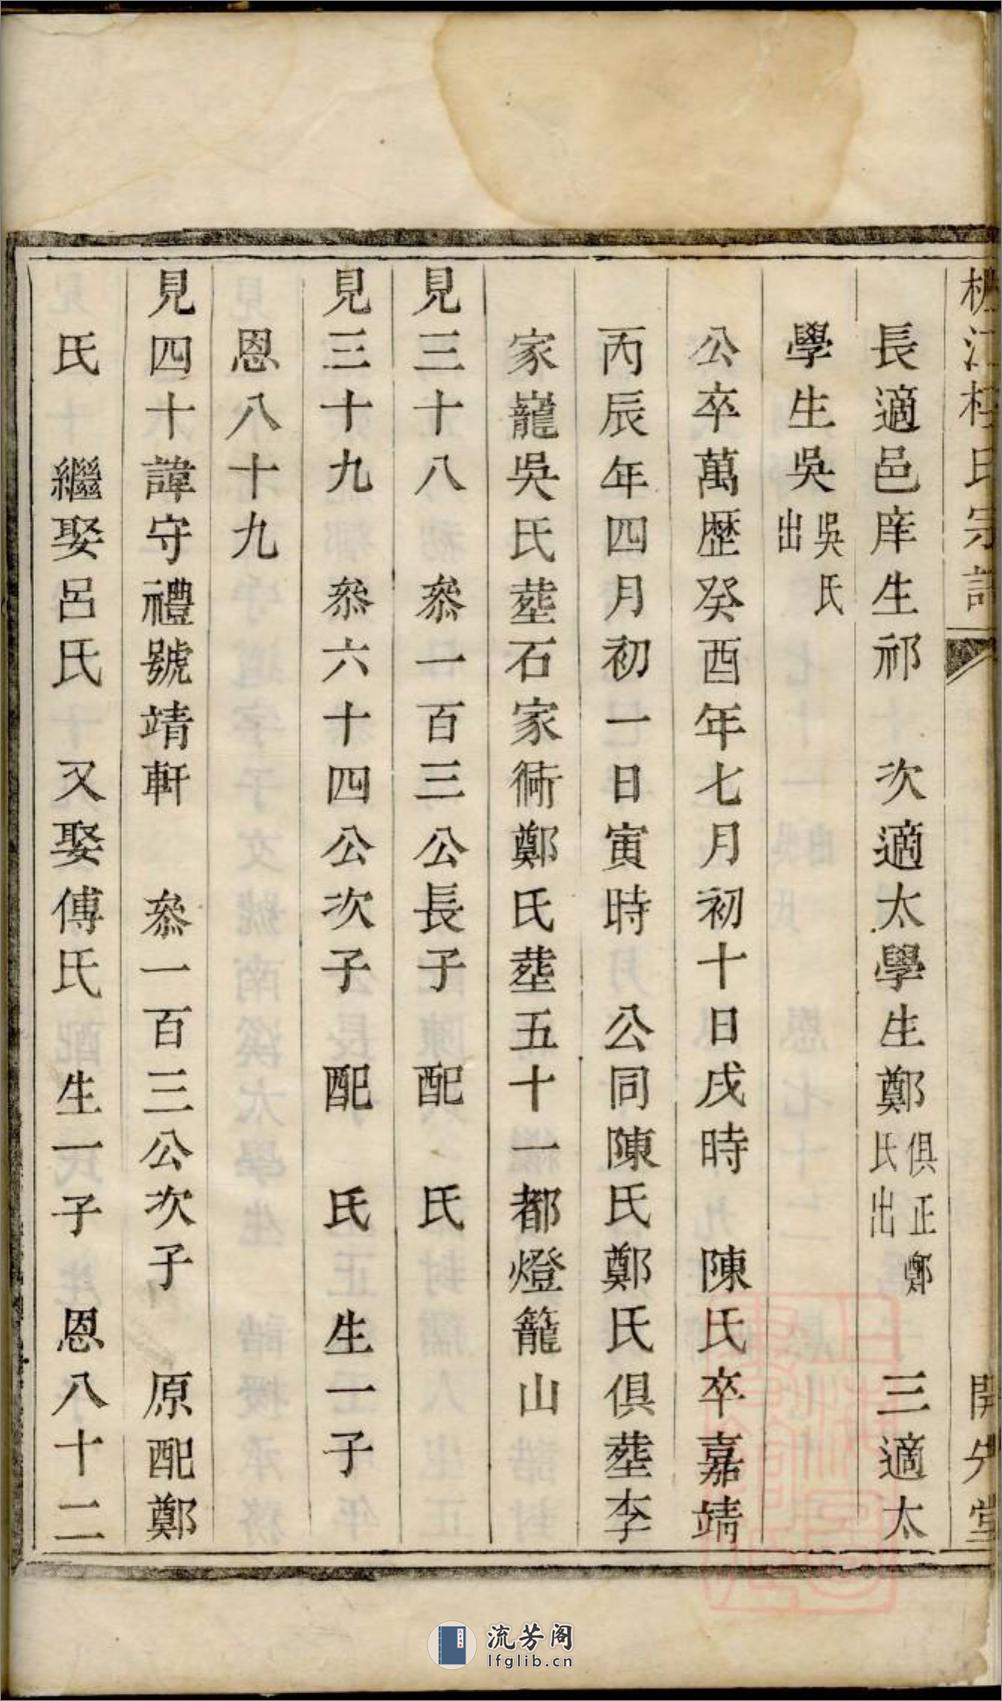 長適邑庠生祁　次適太學生鄭俱正鄭氏出　三適太
學生吳吳氏出
公卒萬歷癸酉年七月初十日戌時　陳氏卒嘉靖
丙辰年四月初一日寅時　公同陳氏鄭氏俱塟李
家巃吳氏塟石家衕鄭氏塟五十一都燈籠山
見三十八　叅一百三公長子　配　氏
見三十九　叅六十四公次子　配　氏　生一子
恩八十九
見四十諱守禮號靖軒　叅一百三公次子　原配鄭
氏　繼娶呂氏　又娶傅氏　生一子　恩八十二
流芳阁
lfglib.cn